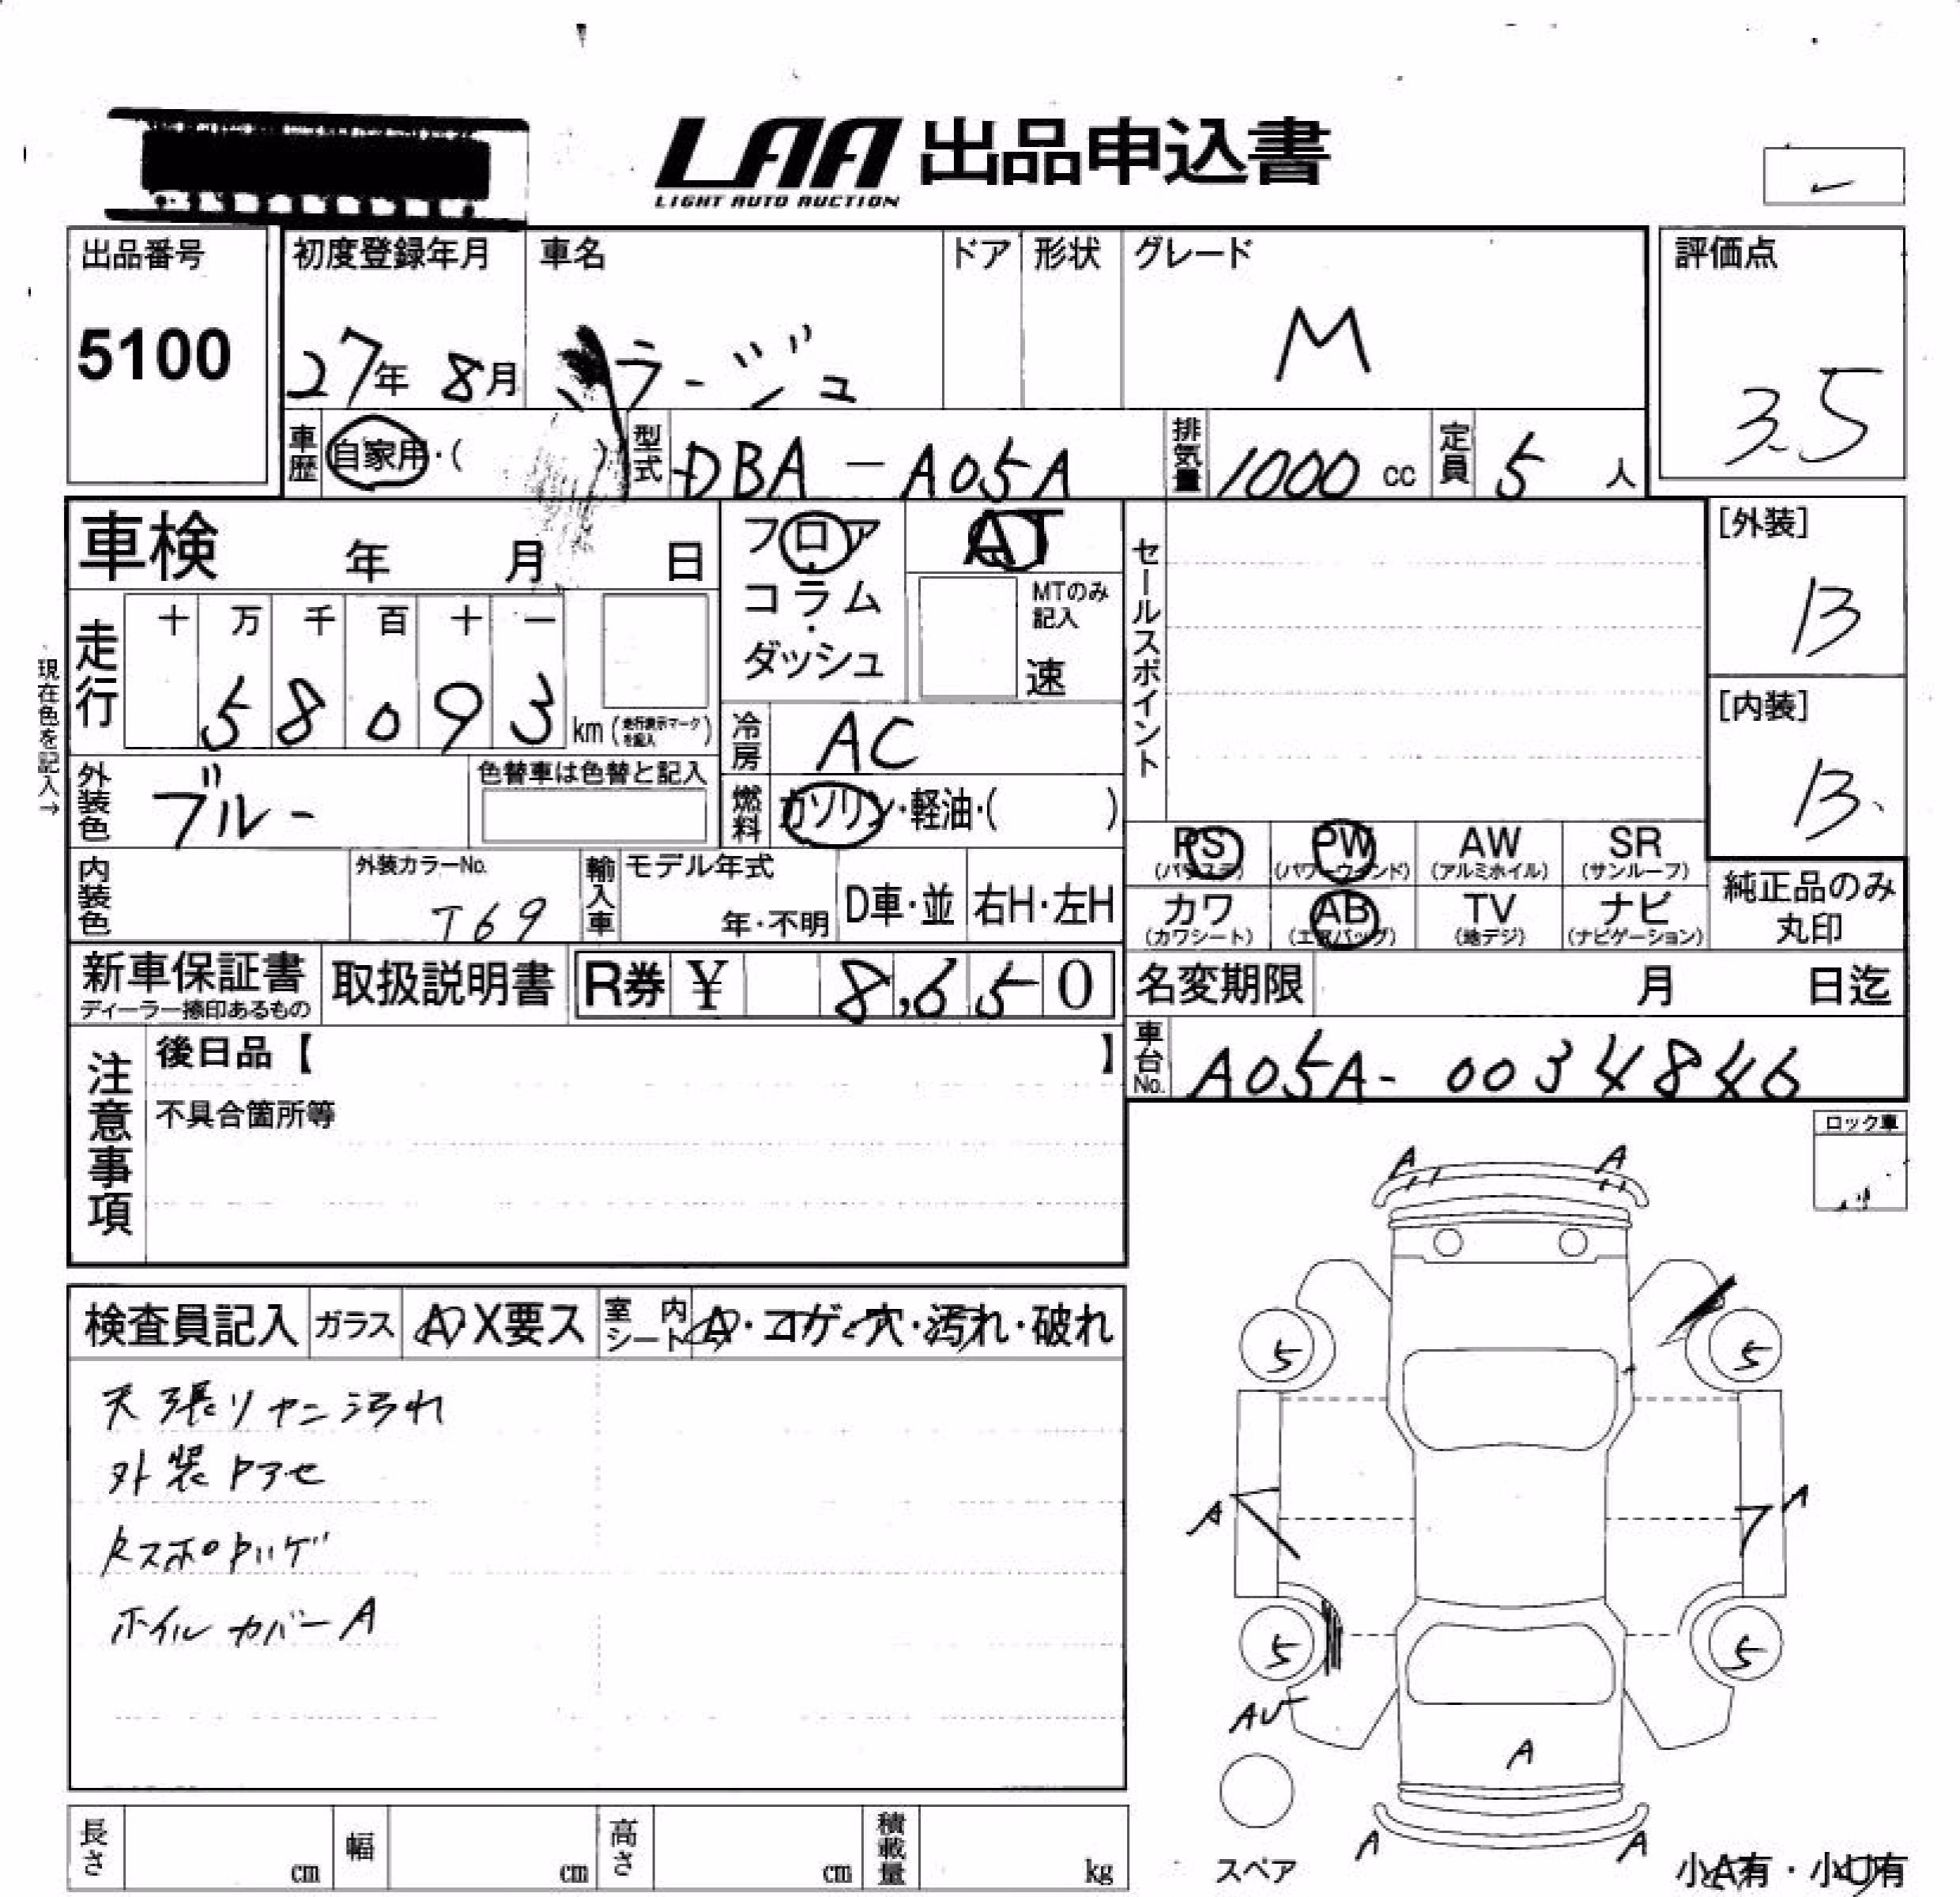 LAA 出品申込書
LIGHT AUTO AUCTION
出品番号
5100
初度登録年月
27年 8月
車名
ミラージュ
ドア
形状
グレード
M
評価点
3.5
車歴
自家用・( )
型式
DBA-A05A
排気量
1000 cc
定員
5 人
車検 年 月 日
フロア
コラム
・
ダッシュ
AT
MTのみ
記入
速
セールスポイント
[外装]
B
[内装]
B
現在色を記入→
走行
十 万 千 百 十 一
5 8 0 9 3
km (走行表示マークを記入)
冷房
AC
外装色
ブルー
色替車は色替と記入
燃料
ガソリン・軽油・( )
内装色
外装カラーNo.
T69
輸入車
モデル年式
年・不明
D車・並
右H・左H
PS
(パワステ)
PW
(パワーウィンド)
AW
(アルミホイル)
SR
(サンルーフ)
カワ
(カワシート)
AB
(エアバッグ)
TV
(地デジ)
ナビ
(ナビゲーション)
純正品のみ
丸印
新車保証書
ディーラー捺印あるもの
取扱説明書
R券 ¥ 8,650
名変期限 月 日迄
車台No.
A05A-0034846
注意事項
後日品【 】
不具合箇所等
ロック車
検査員記入
ガラス
A・X要ス
室内
シート
A・コゲ・穴・汚れ・破れ
天張リヤニ汚れ
外装 アセ
ホイルカバーA
A A
5 5
A A
5 5
AU
A
A A
スペア
小A有・小U有
長さ cm
幅 cm
高さ cm
積載量 kg